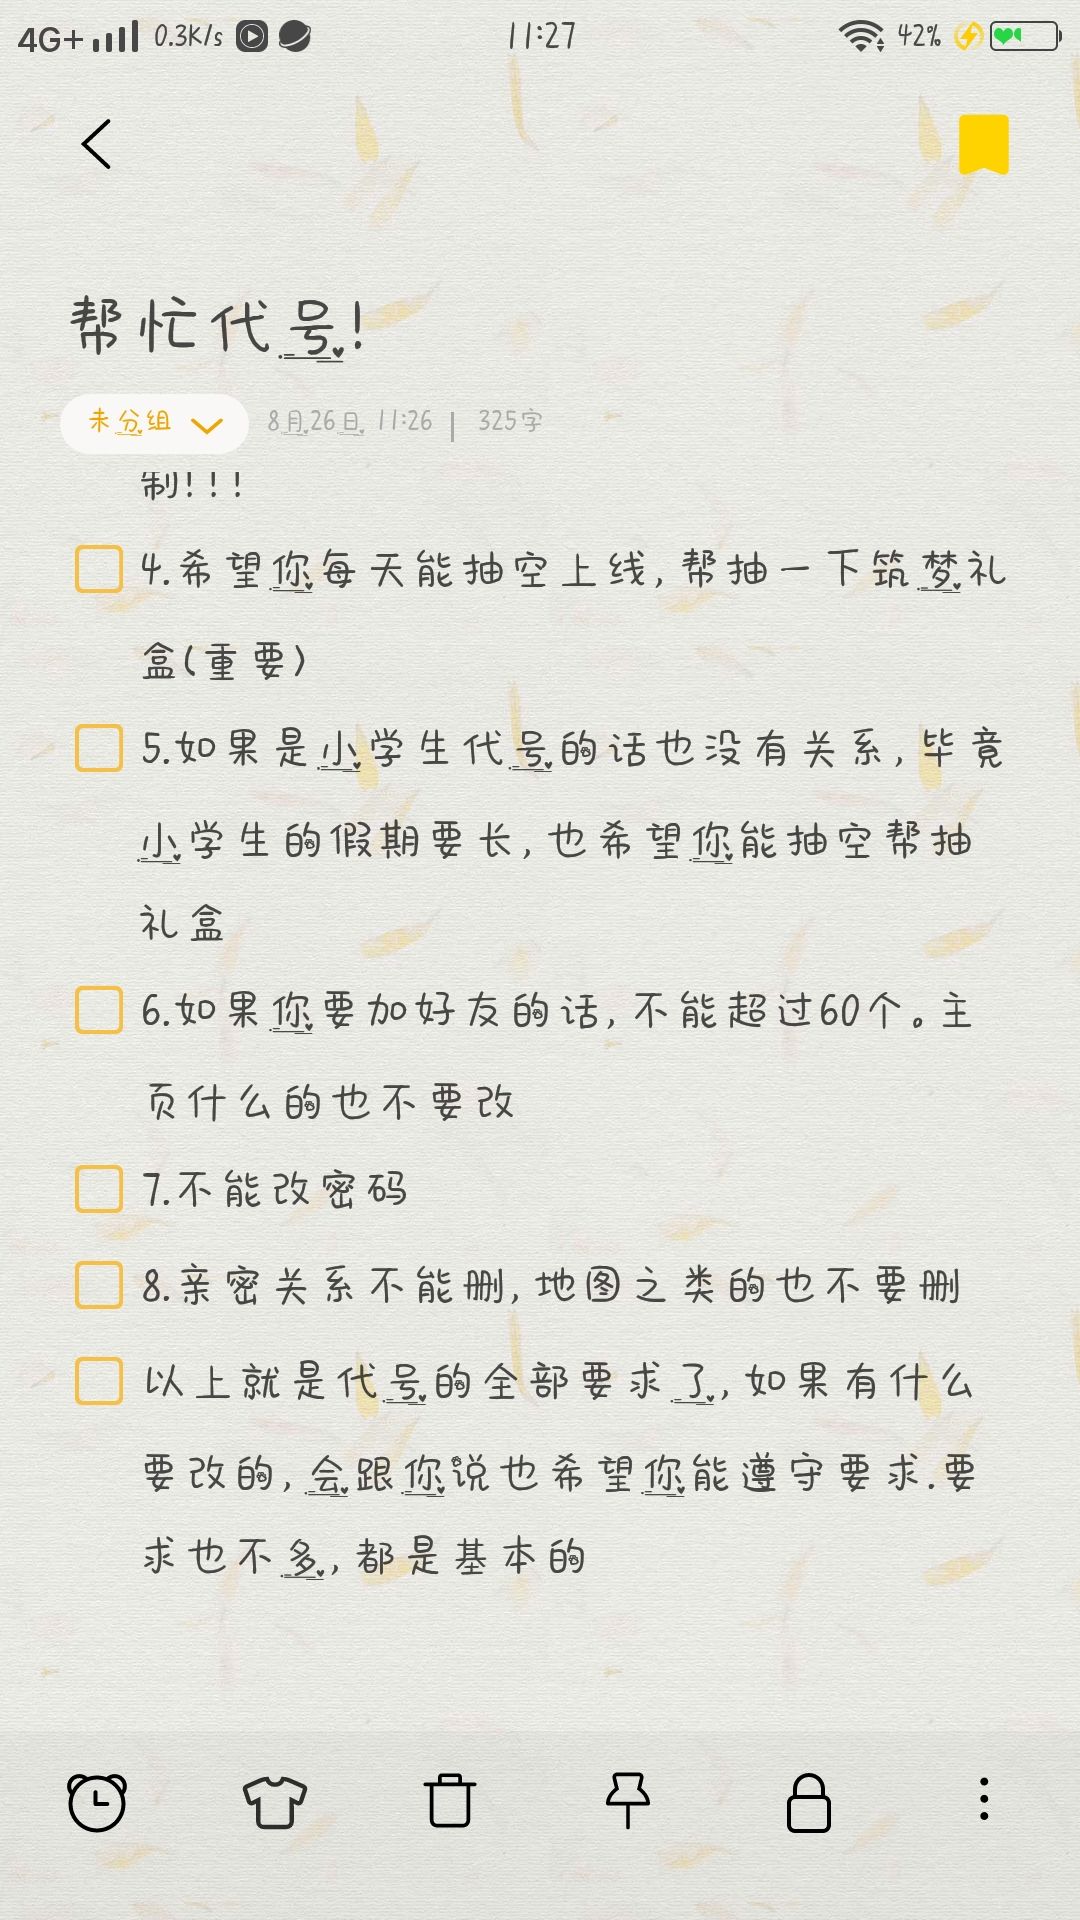 4G+ 0.3K/s 11:27 42%
帮忙代号!
未分组 8月26日 11:26 | 325字
制!!!
4.希望你每天能抽空上线,帮抽一下筑梦礼
盒(重要)
5.如果是小学生代号的话也没有关系,毕竟
小学生的假期要长,也希望你能抽空帮抽
礼盒
6.如果你要加好友的话,不能超过60个。主
页什么的也不要改
7.不能改密码
8.亲密关系不能删,地图之类的也不要删
以上就是代号的全部要求了,如果有什么
要改的,会跟你说也希望你能遵守要求.要
求也不多,都是基本的